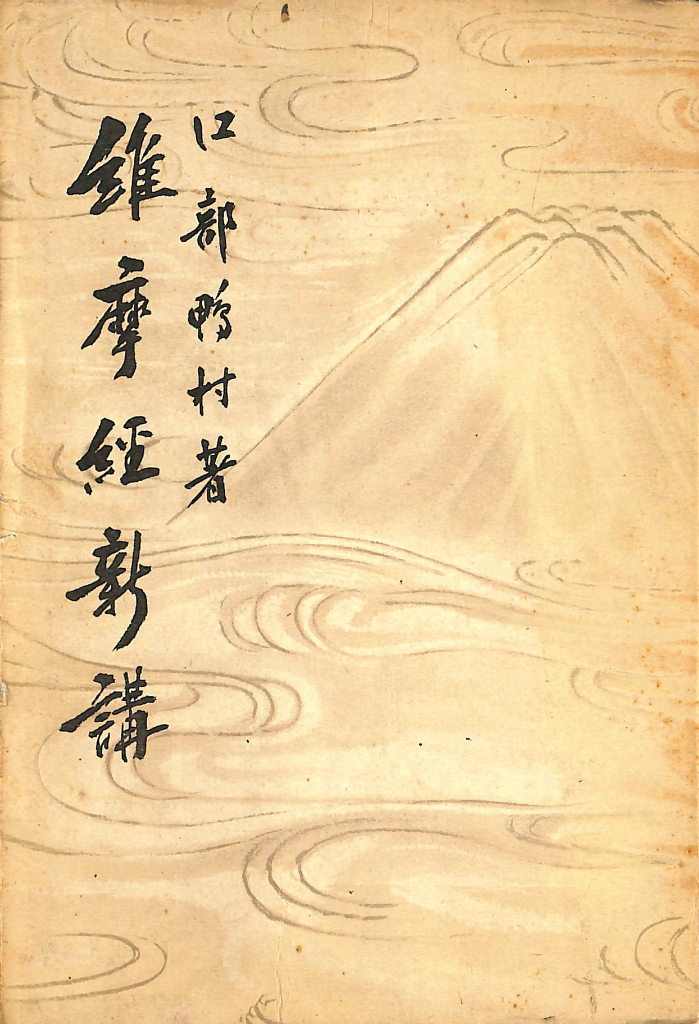 江部鴨村著
維摩經新講